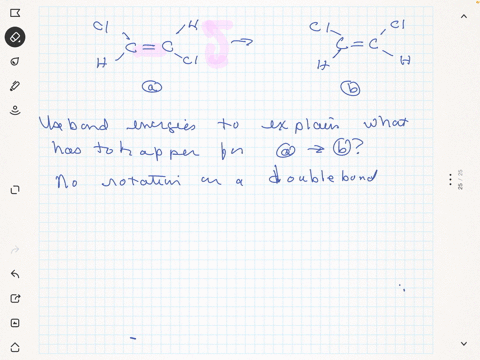 Cl H Cl Cl
C = C → C = C
H Cl H H
a b
Use bond energies to explain what
has to happen for a → b?
No rotation on a double bond
25 / 25